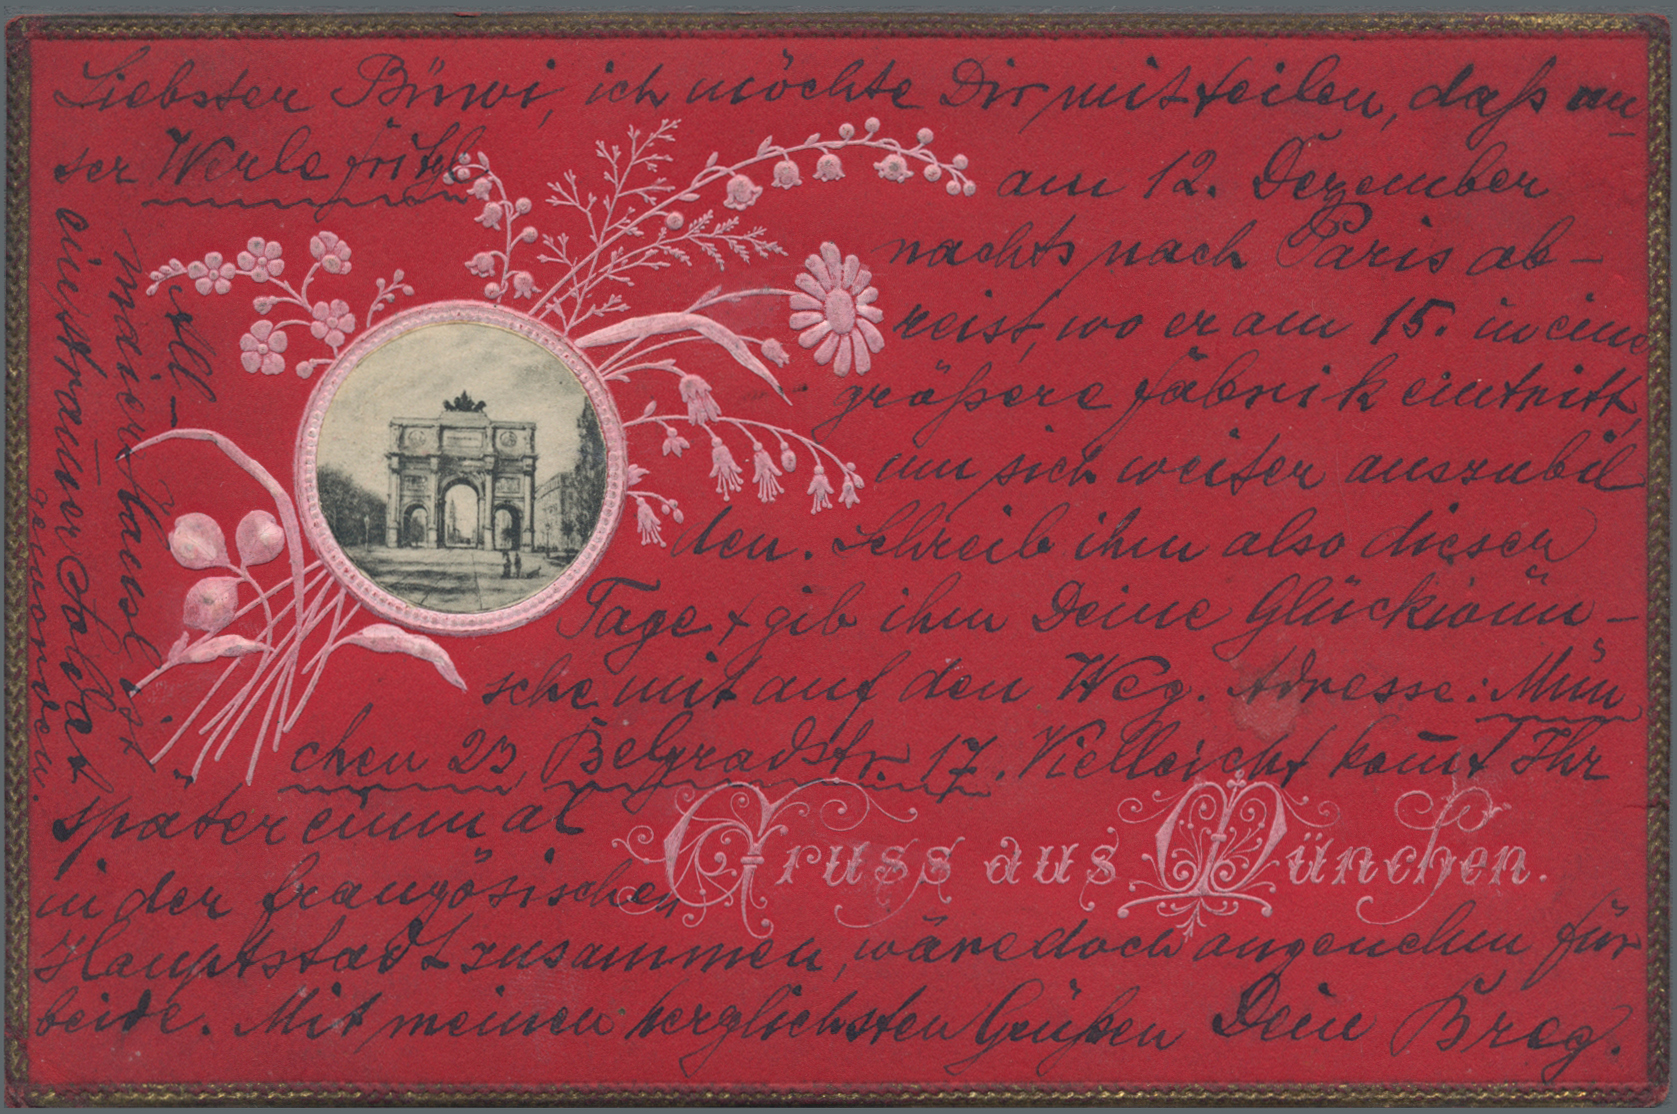 Liebster Burwi, ich möchte Dir mitteilen, daß un-
ser Werle fritzl
am 12. Dezember
nachts nach Paris ab-
reist, wo er am 15. in eine
größere fabrik eintritt,
um sich weiter auszubil
den. Schreib ihm also dieser
Tage + gib ihm Deine Glückwün-
sche mit auf den Weg. Adresse: Mün
chen 23, Belgradstr. 17. Vielleicht kom̄t Ihr
später einmal
in der französischen
Hauptstadt zusammen, wäre doch angenehm für
beide. Mit meinen herzlichsten Grüßen Dein Breg.
Gruss aus München.
ist
geworden.